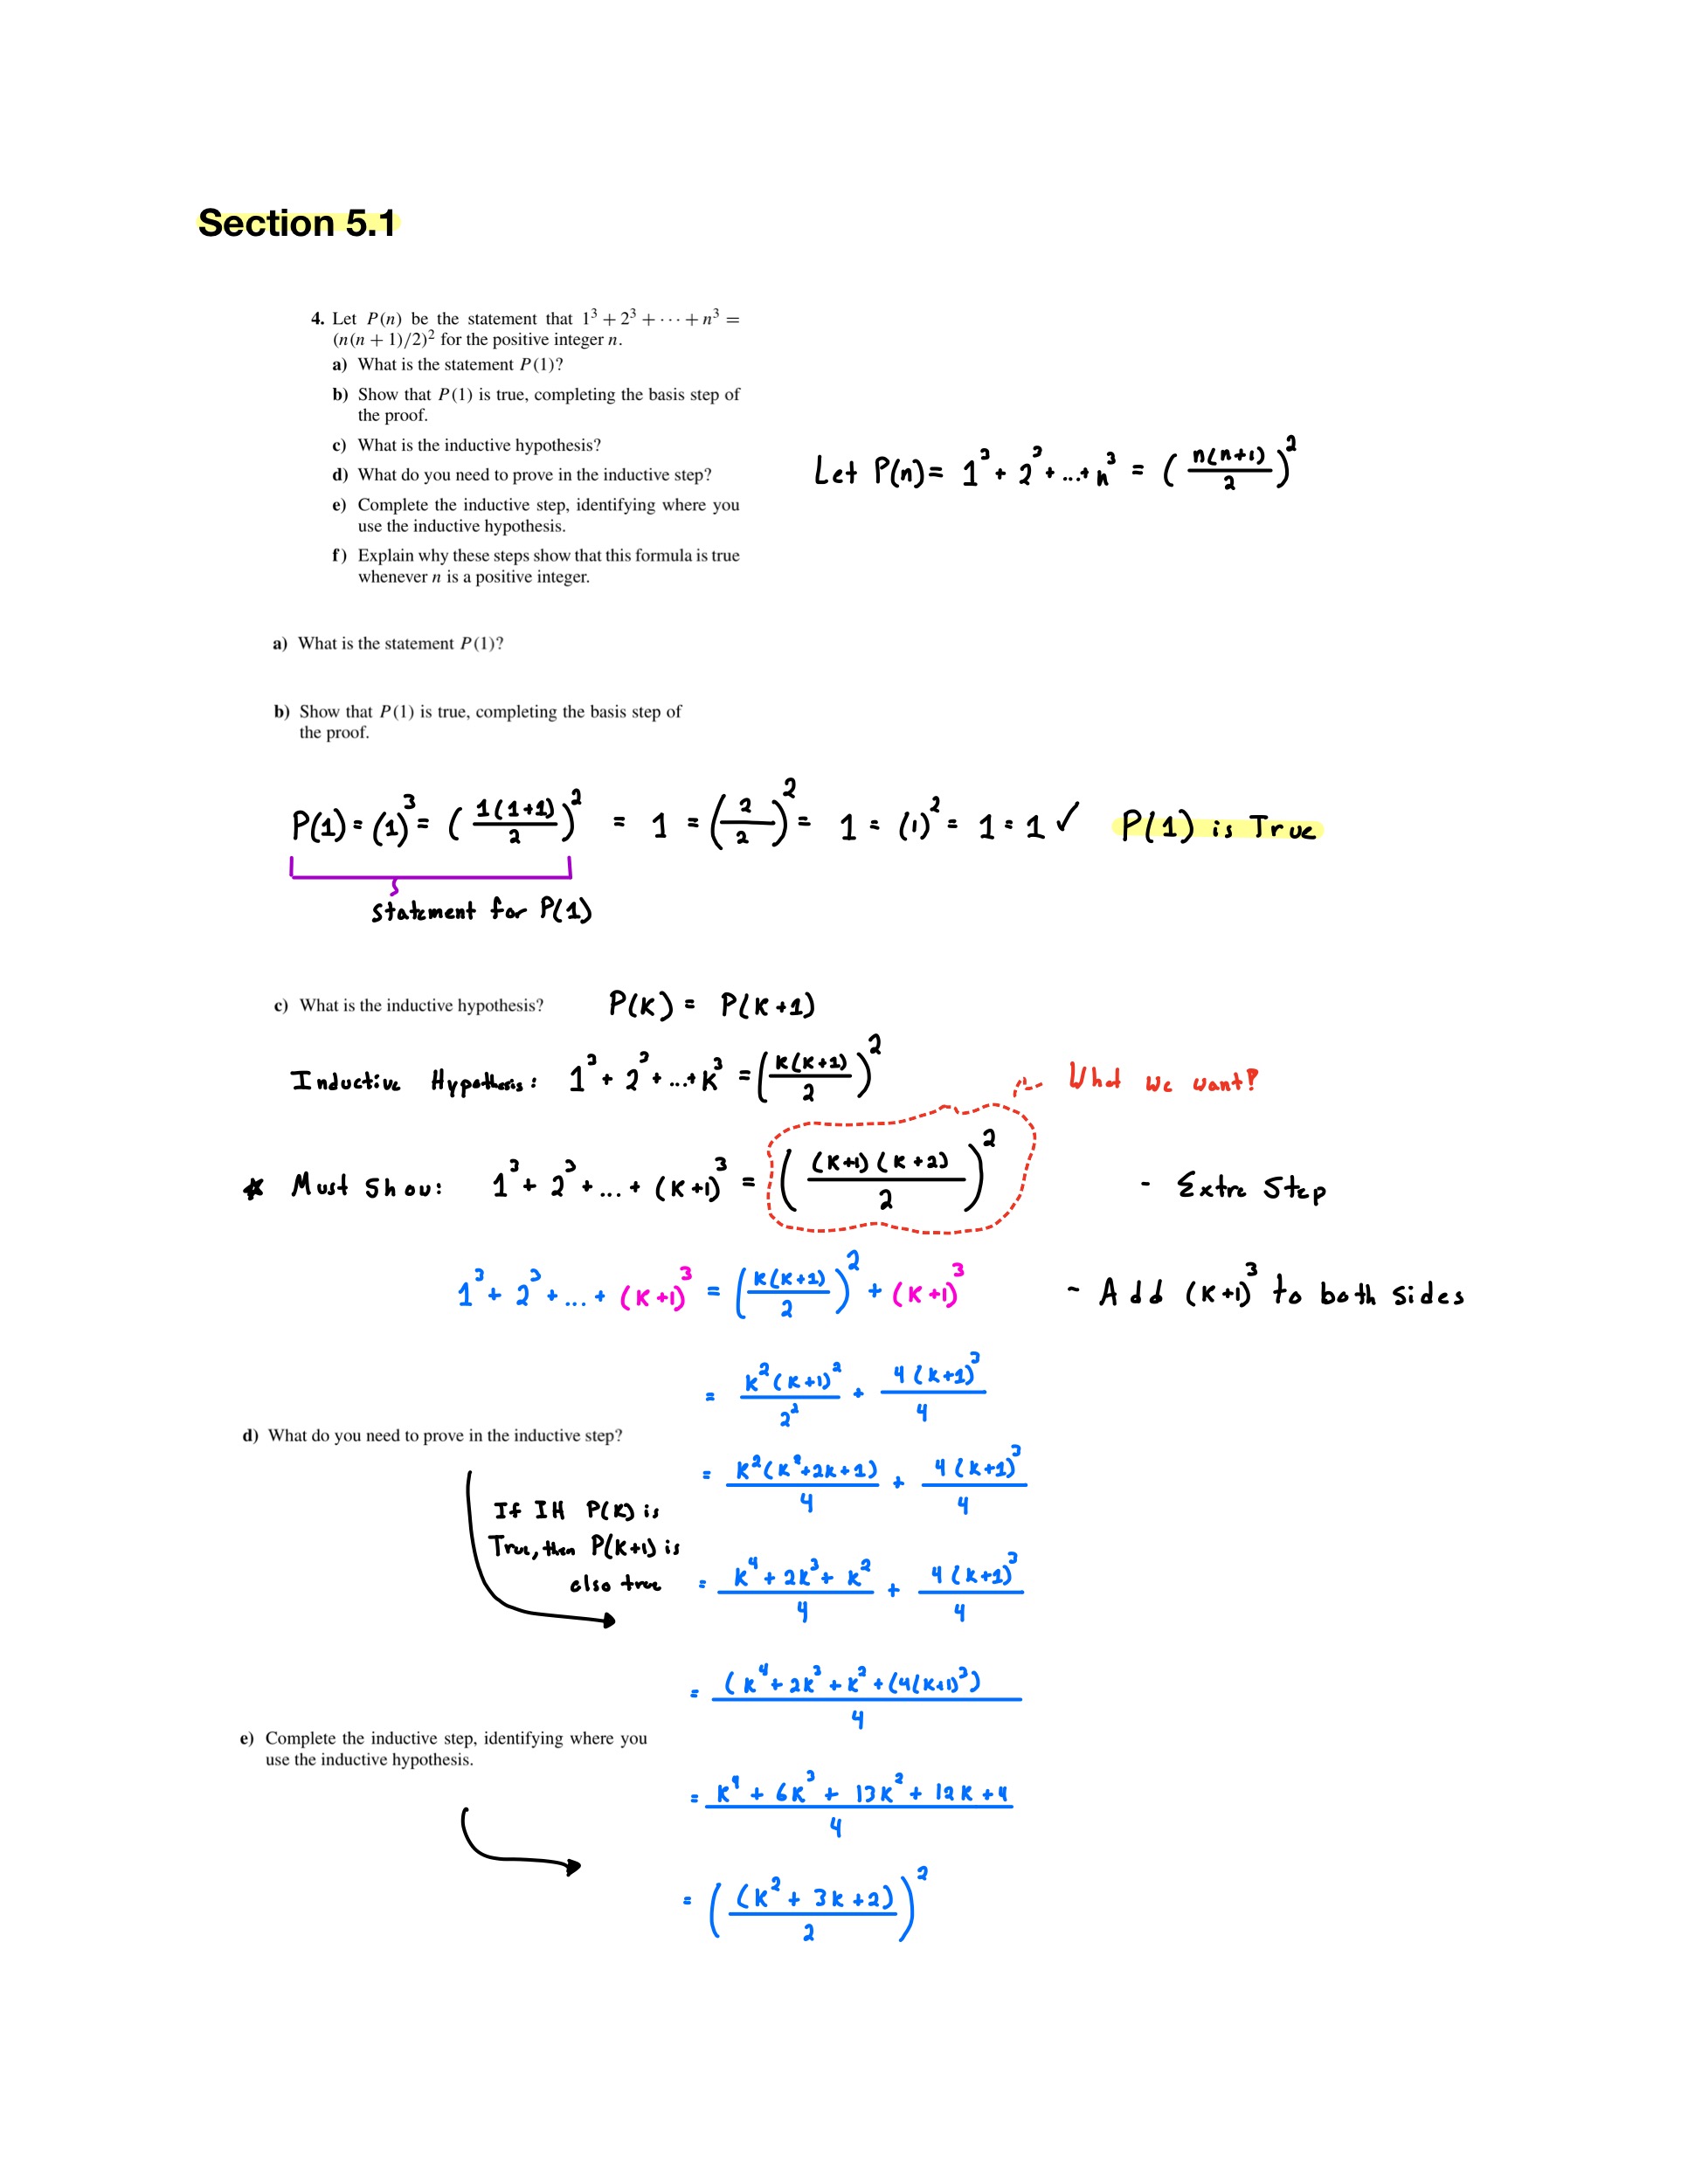 Section 5.1
4. Let P(n) be the statement that 1³ + 2³ + ··· + n³ =
(n(n + 1)/2)² for the positive integer n.
a) What is the statement P(1)?
b) Show that P(1) is true, completing the basis step of
the proof.
c) What is the inductive hypothesis?
d) What do you need to prove in the inductive step?
e) Complete the inductive step, identifying where you
use the inductive hypothesis.
f) Explain why these steps show that this formula is true
whenever n is a positive integer.
Let P(n) = 1³ + 2³ + ... + n³ = (n(n+1)/2)²
a) What is the statement P(1)?
b) Show that P(1) is true, completing the basis step of
the proof.
P(1) = (1)³ = (1(1+1)/2)² = 1 = (2/2)² = 1 = (1)² = 1 = 1 ✓ P(1) is True
Statement for P(1)
c) What is the inductive hypothesis? P(K) = P(K+1)
Inductive Hypothesis: 1³ + 2³ + ... + K³ = (K(K+1)/2)²
What we want?
* Must Show: 1³ + 2³ + ... + (K+1)³ = ((K+1)(K+2)/2)² - Extra Step
1³ + 2³ + ... + (K+1)³ = (K(K+1)/2)² + (K+1)³ - Add (K+1)³ to both sides
= K²(K+1)²/2² + 4(K+1)³/4
d) What do you need to prove in the inductive step?
= K²(K²+2K+1)/4 + 4(K+1)³/4
If IH P(K) is
True, then P(K+1) is
also true
= K⁴ + 2K³ + K²/4 + 4(K+1)³/4
= (K⁴ + 2K³ + K² + (4(K+1)³)/4
e) Complete the inductive step, identifying where you
use the inductive hypothesis.
= K⁴ + 6K³ + 13K² + 12K + 4/4
= ((K² + 3K + 2)/2)²